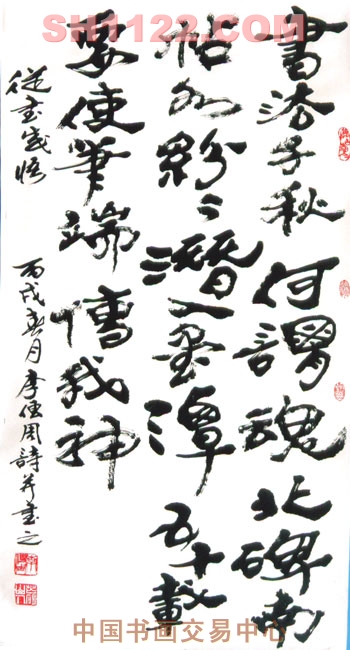 SH1122.COM
書法千秋何謂魂北碑南
帖紛々潛墨潭五十載
要使筆端傳我神
從書感悟 丙戌春月李周詩并書之
中国书画交易中心